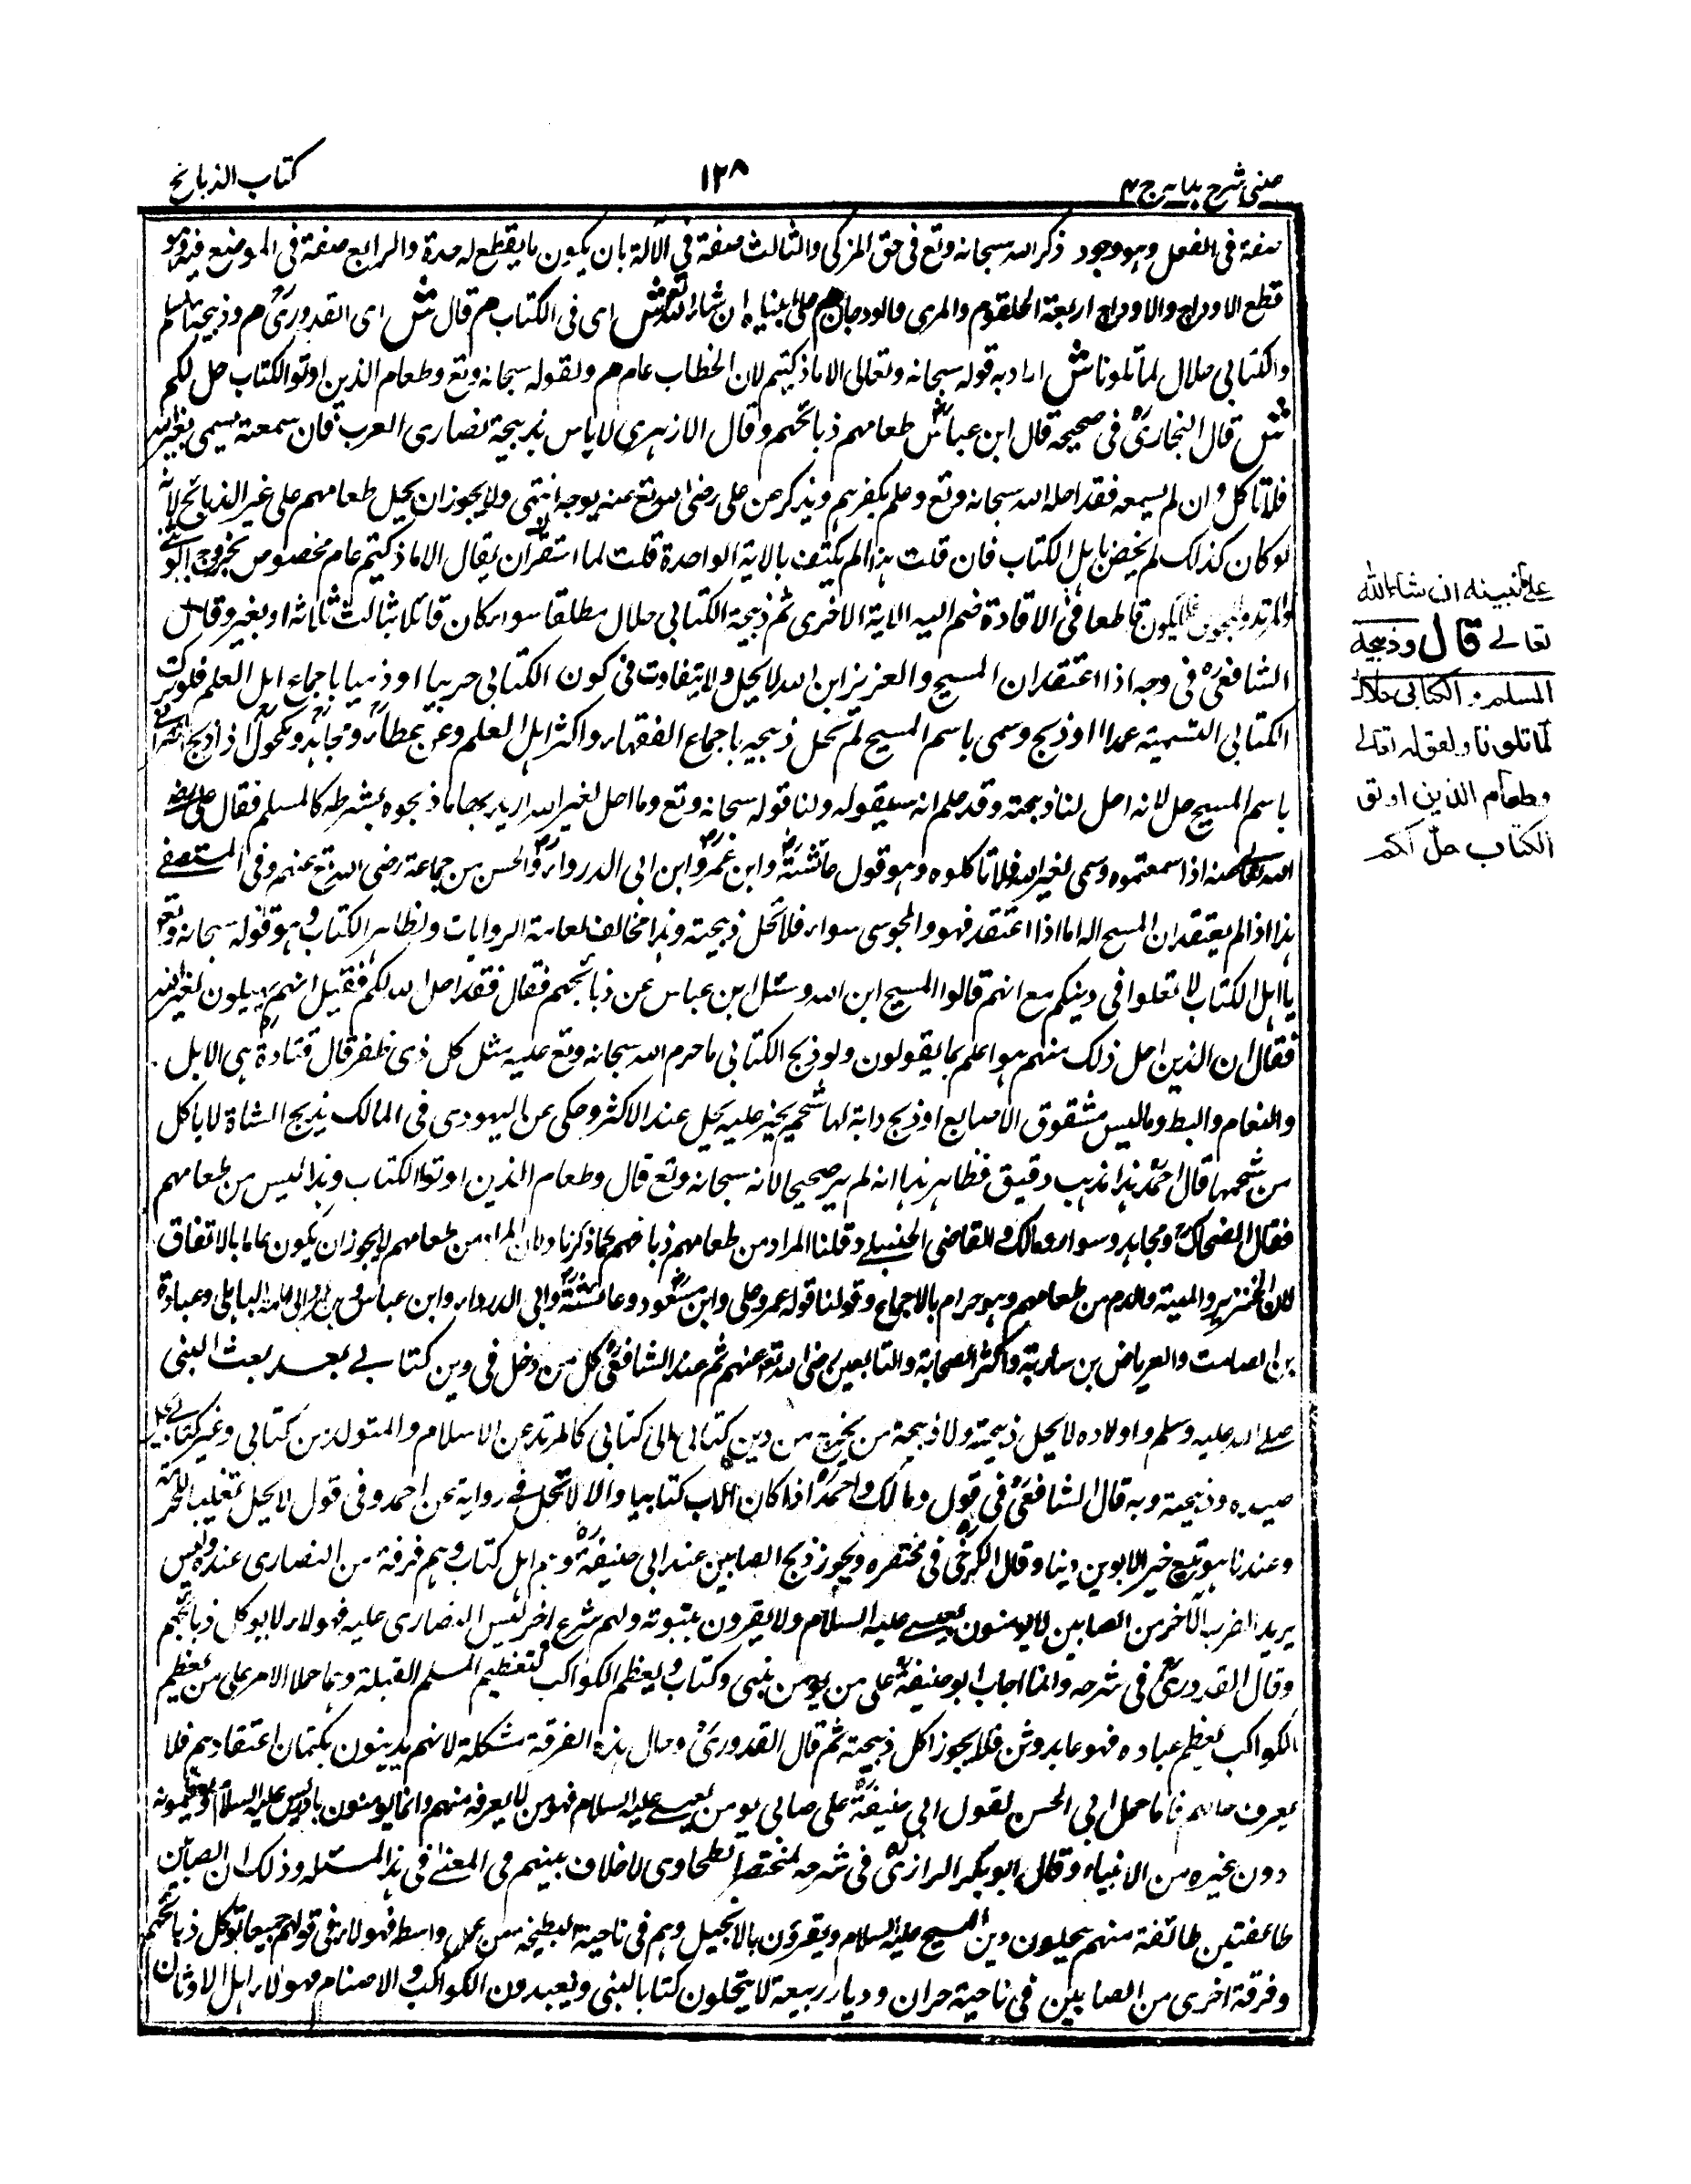 عینی شرح ہدایہ ج ۴
١٢٨
کتاب الذبائح
صفة فی الفعل وہو وجود ذکر اللہ سبحانہ وتع فی حق المزکی والثالث صفة فی الآلة بان یکون ما یقطع لہ حدة والرابع صفة فی الموضع فیہ وہو
قطع الاوداج والاوداج اربعة الحلقوم والمری والودجان ھم علی ما نبینہ ان شاء اللہ تع ش ای فی الکتاب ھم قال ش ای القدوریؒ ھم وذبیحة المسلم
والکتابی حلال لما تلونا ش اراد بہ قولہ سبحانہ وتعالی الا ما ذکیتم لان الخطاب عام ھم ولقولہ سبحانہ وتع وطعام الذین اوتوا الکتاب حل لکم
ش قال البخاریؒ فی صحیحہ قال ابن عباسؓ طعامہم ذبائحہم وقال الازہری لا باس بذبیحة نصاری العرب فان سمعتہ یسمی بغیر اللہ
فلا تاکل وان لم یسمعہ فقد احلہ اللہ سبحانہ وتع وعلم بکفرہم ویذکر عن علی رضی اللہ تع عنہ یوجہ انتہی ولا یجوز ان یحمل طعامہم علی غیر الذبائح لانہ
لو کان کذلک لم یخص باہل الکتاب فان قلت ہذا لم یکتف بالایة الواحدة قلت لما استقر ان یقال الا ما ذکیتم عام مخصوص بخروج الوثنی
والمرتد والمجوسی فلا یکون قاطعا فی الافادة ضم الیہ الایة الاخری ثم ذبیحة الکتابی حلال مطلقا سواء کان قائلا بثالث ثلاثة او بغیرہ وقال
الشافعیؒ فی وجہ اذا اعتقد ان المسیح والعزیز ابن اللہ لا یحل ولا یتفاوت فی کون الکتابی حربیا او ذمیا باجماع اہل العلم فلو ترک
الکتابی التسمیة عمدا او ذبح وسمی باسم المسیح لم تحل ذبیحہ باجماع الفقہاء واکثر اہل العلم وعن عطاءؒ ومجاہدؒ ومکحولؒ اذا ذبح النصرانی
باسم المسیح حل لانہ احل لنا ذبیحتہ وقد علم انہ سیقولہ ولنا قولہ سبحانہ وتع وما اہل لغیر اللہ ارید بہا ما ذبحوہ بشرطہ کالمسلم فقال علی رضی
اللہ تعالی عنہ اذا سمعتموہ وسمی لغیر اللہ فلا تاکلوہ وہو قول عائشةؓ وابن عمرؓ وابن ابی الدرداءؓ والحسن من جماعة رضی اللہ تع عنہم وفی المستصفی
ہذا اذا لم یعتقد ان المسیح الہ اما اذا اعتقد فہو والمجوسی سواء فلا تحل ذبیحتہ وہذا مخالف لعامة الروایات ولظاہر الکتاب وہو قولہ سبحانہ وتع
یا اہل الکتاب لا تغلوا فی دینکم مع انہم قالوا المسیح ابن اللہ وسئل ابن عباس عن ذبائحہم فقال فقد احل اللہ لکم فقیل انہم یہلون لغیر اللہ
فقال ان الذین احل ذلک منہم ہو اعلم بما یقولون ولو ذبح الکتابی ما حرم اللہ سبحانہ وتع علیہ مثل کل ذی ظفر قال قتادةؒ ہی الابل
والنعام والبط وما لیس مشقوق الاصابع او ذبح دابة لہا شحم یحرم علیہ یحل عند الاکثر وحکی عن الیہودی فی المالک یذبح الشاة لا یاکل
من شحمہا قال احمدؒ ہذا مذہب دقیق فظاہر ہذا انہ لم یر صحیحا لانہ سبحانہ وتع قال وطعام الذین اوتوا الکتاب وہذا لیس من طعامہم
فقال الضحاکؒ ومجاہد وسوار ومالک والقاضی الحنبلی وقلنا المراد من طعامہم ذبائحہم کما ذکرنا ولان المراد من طعامہم لا یجوز ان یکون عاما بالاتفاق
لان الخنزیر والمیتة والدم من طعامہم وہو حرام بالاجماع وقولنا قولہ عمر وعلی وابن مسعود وعائشةؓ وابی الدرداء وابن عباس وابی امامة الباہلی وعبادة
بن الصامت والعرباض بن ساریة واکثر الصحابة والتابعین رضی اللہ تع عنہم ثم عند الشافعیؒ کل من دخل فی دین کتابی بعد بعث النبی
صلی اللہ علیہ وسلم واولادہ لا یحل ذبیحتہ ولا ذبیحة من یخرج من دین کتابی الی کتابی کالمرتد عن الاسلام والمتولد من کتابی وغیر کتابی یحل
صیدہ وذبیحتہ وبہ قال الشافعیؒ فی قول ومالک واحمدؒ اذا کان الاب کتابیا والا لا تحل فی روایة عن احمد وفی قول لا یحل تغلیبا للحرمة
وعندنا ہو یتبع خیر الابوین دینا وقال الکرخیؒ فی مختصرہ ویجوز ذبح الصابین عند ابی حنیفةؒ وہم اہل کتاب وہم فرقة من النصاری عندہ ولیس
یرید الضرب الآخر من الصابین لا یومنون بعیسی علیہ السلام ولا یقرون بنبوتہ ولہم شرع اخر لیس النصاری علیہ فہولاء لا یوکل ذبائحہم
وقال القدوریؒ فی شرحہ وانما اجاب ابو حنیفةؒ علی من یومن بنبی وکتاب ویعظم الکواکب کتعظیم المسلم القبلة وہما حملا الامر علی من یعظم
الکواکب تعظیم عبادہ فہو عابد وثن فلا یجوز اکل ذبیحتہ ثم قال القدوریؒ وحال ہذہ الفرقة مشکلة لانہم یدینون بکتمان اعتقادہم فلا
یعرف حالہم فاما حمل ابی الحسن لقول ابی حنیفةؒ علی صابی یومن بعیسی علیہ السلام فہو من لا یعرفہ منہم وانما یومنون بادریس علیہ السلام ویعظمونہ
دون غیرہ من الانبیاء وقال ابو بکر الرازیؒ فی شرحہ لمختصر الطحاوی لا خلاف بینہم فی المعنے فی ہذا المسئلة وذلک ان الصابین
طائفتین طائفة منہم ینتحلون دین المسیح علیہ السلام ویقرؤن بالانجیل وہم فی ناحیة البطیحة من عمل واسط فہولاء فی قولہم جمیعا توکل ذبائحہم
وفرقة اخری من الصابین فی ناحیة حران ودیار ربیعة لا ینتحلون کتابا لنبی ویعبدون الکواکب والاصنام فہولاء اہل الاوثان
علی ما نبینہ ان شاء اللہ
تعالے قال وذبیحة
المسلم و الکتابی حلال
لما تلونا ولقولہ تعالے
وطعام الذین اوتوا
الکتاب حل لکم